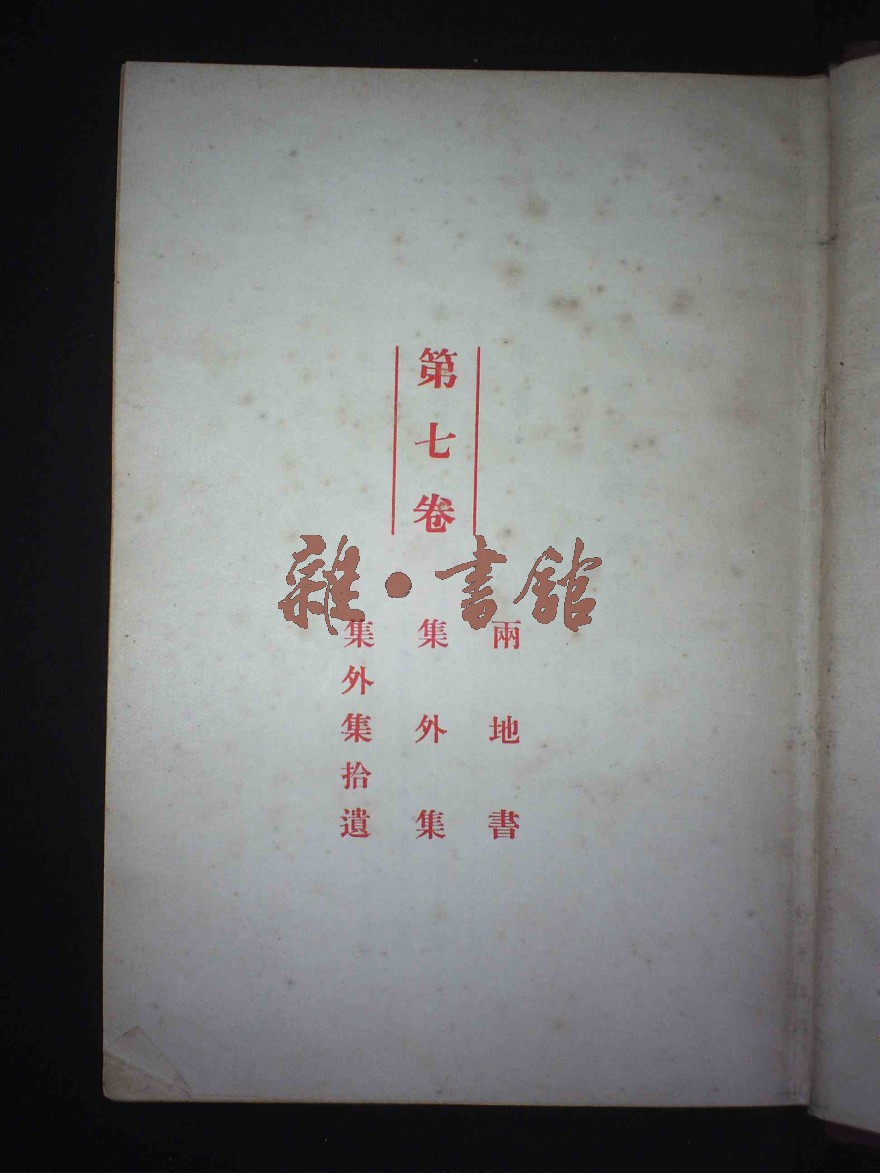 第七卷
雜·書館
兩地書
集外集
集外集拾遺